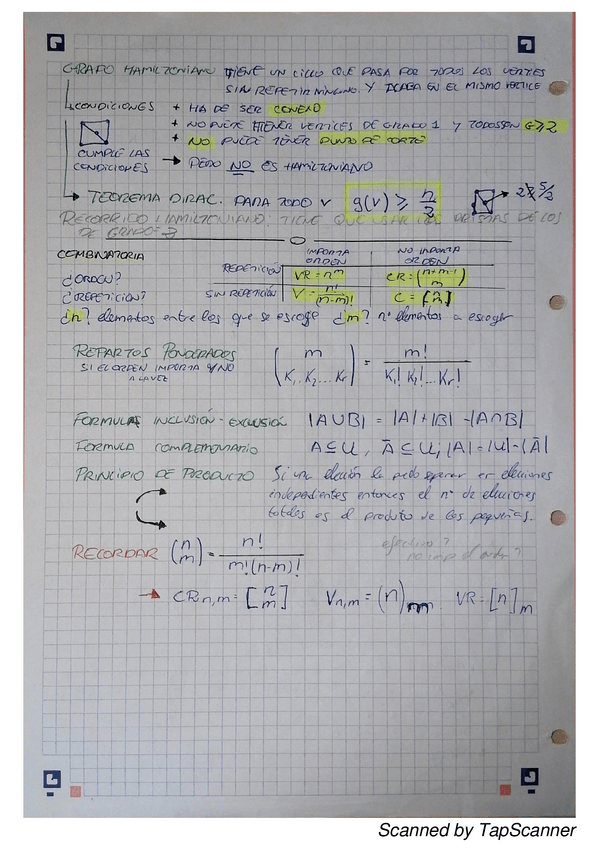 GRAFO HAMILTONIANO TIENE UN CICLO QUE PASA POR TODOS LOS VERTICES
SIN REPETIR NINGUNO. Y ACABA EN EL MISMO VERTICE
CONDICIONES + HA DE SER CONEXO
+ NO PUEDE TENER VERTICES DE GRADO 1 Y TODOS SON G≥2
+ NO PUEDE TENER PUNTO DE CORTE
CUMPLE LAS
CONDICIONES → PERO NO ES HAMILTONIANO
→ TEOREMA DIRAC. PARA TODO V g(v) ≥ n/2
RECORRIDO HAMILTONIANO: TIENE QUE USAR ARISTAS DE LOS
DE GRADO = 2
COMBINATORIA
IMPORTA ORDEN NO IMPORTA ORDEN
¿ORDEN? REPETICIÓN VR = n^m CR = (n+m-1 m)
¿REPETICION? SIN REPETICIÓN V = n!/(n-m)! C = [n m]
¿n? elementos entre los que se escoge ¿m? nº elementos a escoger
REPARTOS PONDERADOS (m K₁, K₂... Kr) = m!/K₁! K₂!...Kr!
SI EL ORDEN IMPORTA Y NO
A LA VEZ
FORMULAS INCLUSIÓN-EXCLUSIÓN |A∪B| = |A|+|B| -|A∩B|
FORMULA COMPLEMENTARIO A⊆U, Ā⊆U; |A|=|U|-|Ā|
PRINCIPIO DE PRODUCTO Si una elección la puedo separar en elecciones
independientes entonces el nº de elecciones
totales es el producto de las pequeñas.
RECORDAR (n m) = n!/m!(n-m)!
no imp el orden?
→ CRn,m = [n m] Vn,m = (n)m VR = [n]m
Scanned by TapScanner